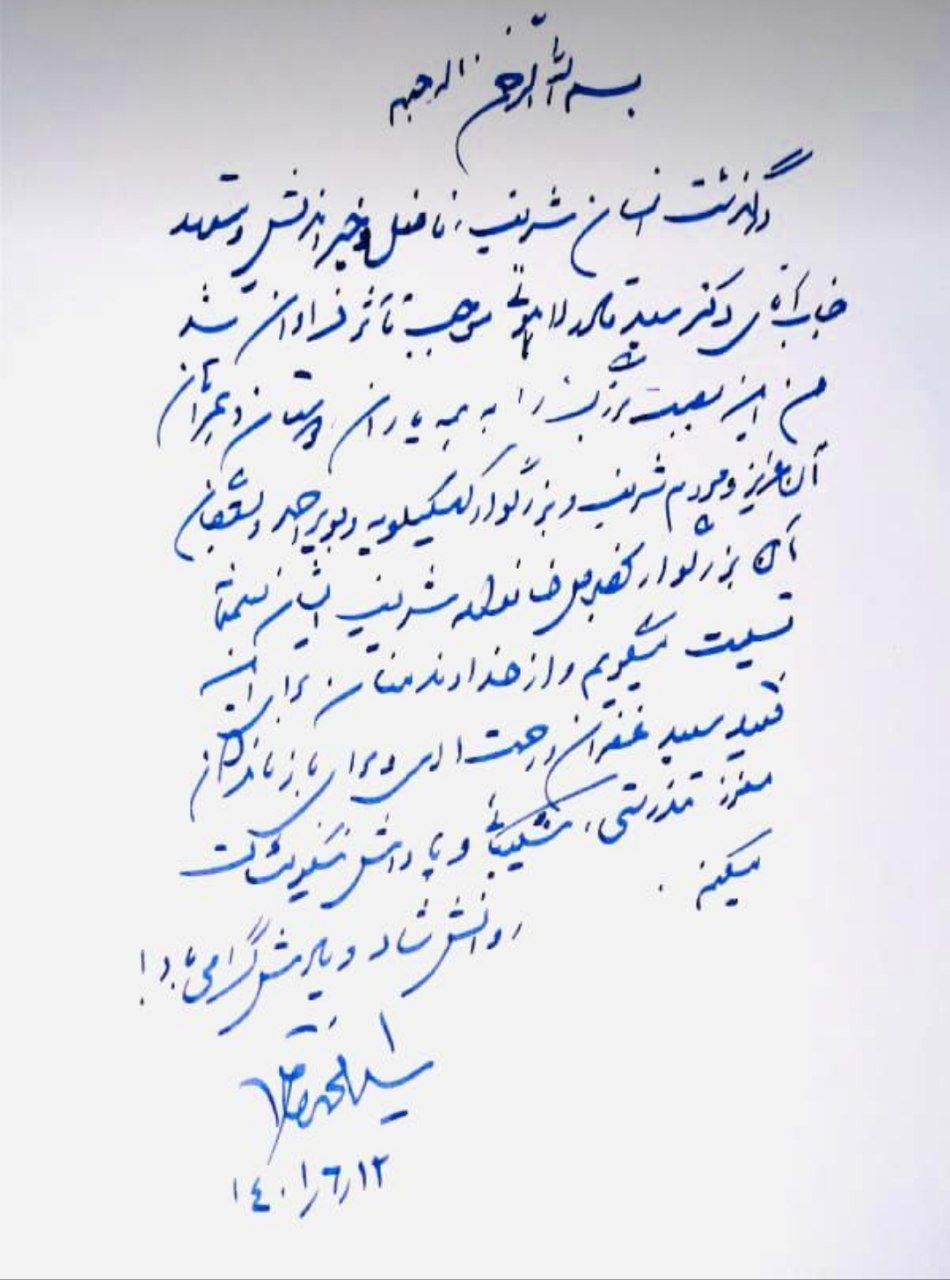 بسم الله الرحمن الرحیم
درگذشت انسان شریف، فاضل و خیراندیش و متعهد
جناب آقای دکتر سید قادر لاهوتی موجب تأثر فراوان شد
من این مصیبت بزرگ را به همه یاران، دوستان و
آن عزیز و مردم شریف و بزرگوار کهگیلویه و بویراحمد و
آن بزرگوار خانواده شریف ایشان صمیمانه
تسلیت میگویم و از خداوند منان برای این
فقید سعید غفران و رحمت الهی و برای بازماندگان
معزز تندرستی، شکیبائی و پاداش نیکو مسئلت
میکنم.
روانش شاد و یادش گرامی باد!
سید محمد خاتمی
۱۴۰۱/۶/۱۲